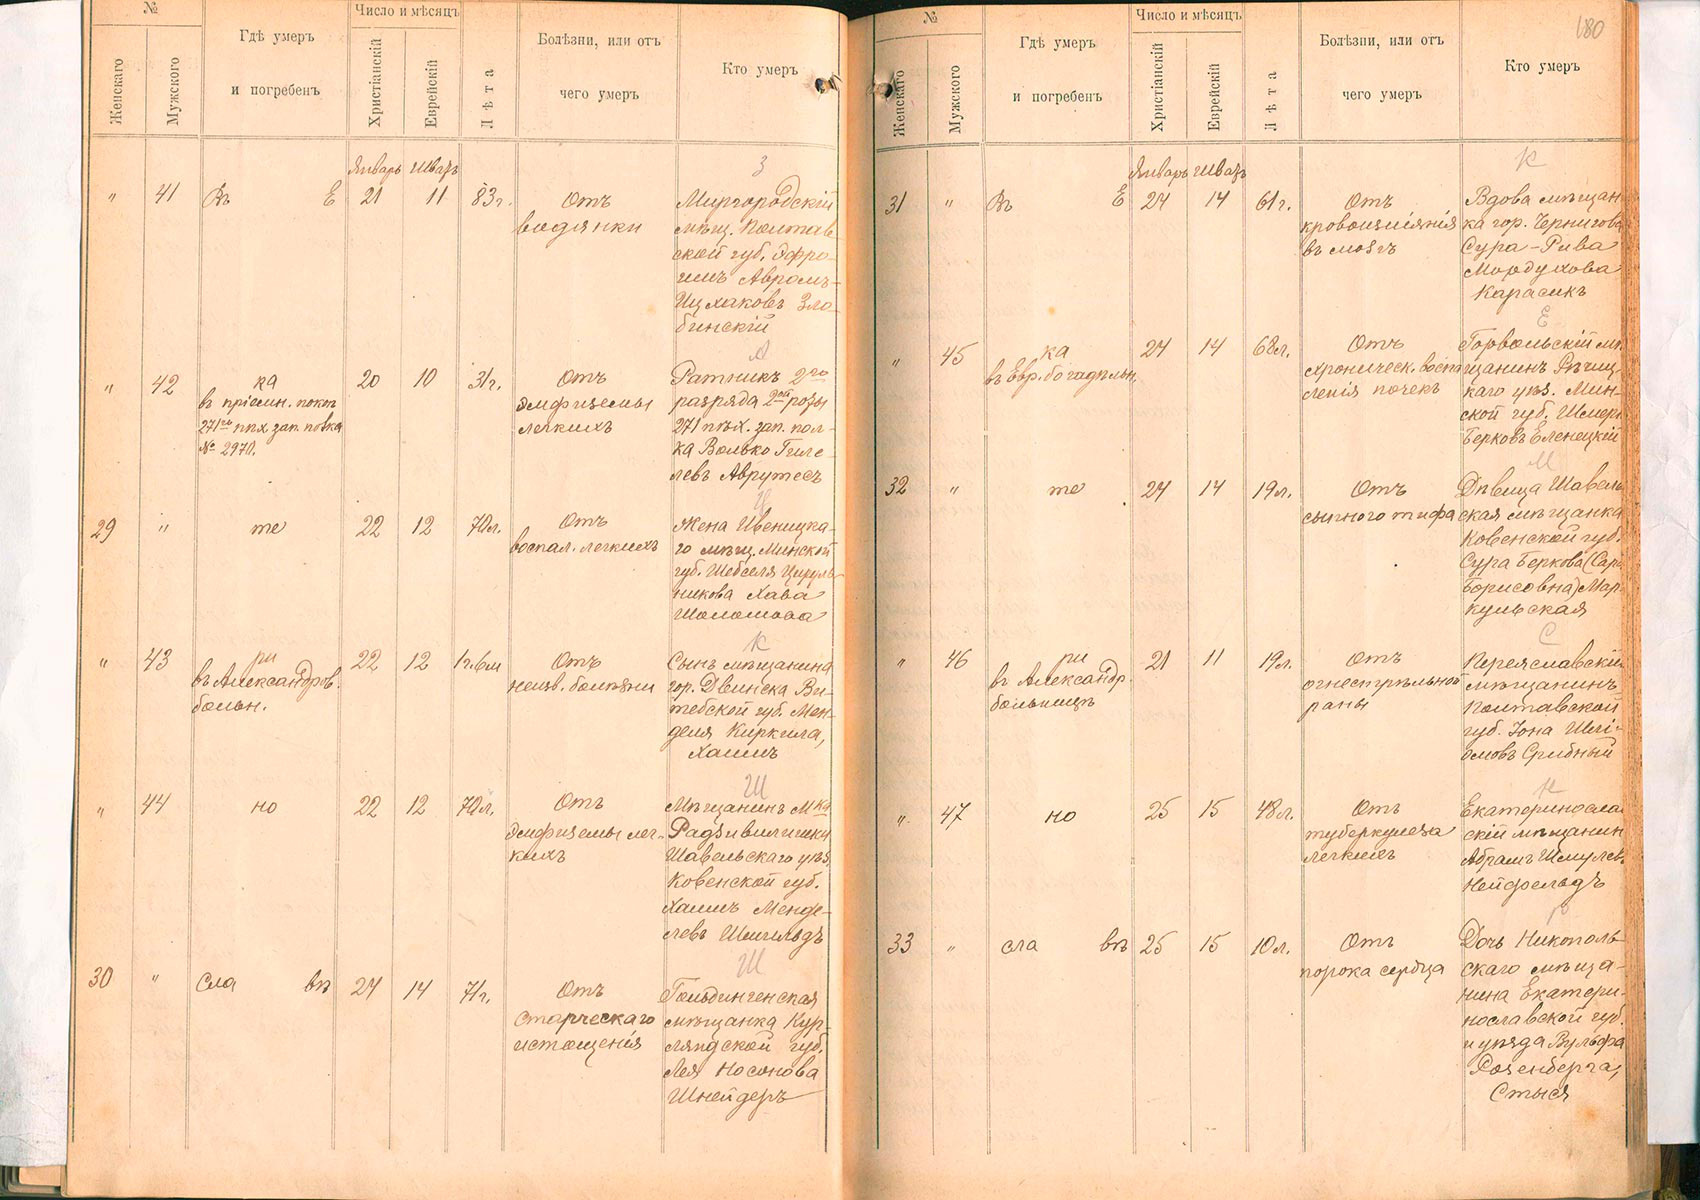 №
Женскаго
Мужского
Гдѣ умеръ
и погребенъ
Число и мѣсяцъ
Христіанскій
Еврейскій
Лѣта
Болѣзни, или отъ
чего умеръ
Кто умеръ
Январь Шватъ
З
" 41 Въ Е 21 11 83 г.
Отъ
водянки
Миргородскій
мѣщ. Полтав-
ской губ. Эфро-
имъ Авромъ-
Ицхаковъ Зло-
бинскій
А
" 42
ка
въ пріемн. покоѣ
271го пѣх. зап. полка
№ 2970.
20 10 31 г.
Отъ
эмфиземы
легкихъ
Ратникъ 2го
разряда 2ой роты
271 пѣх. зап. пол-
ка Волько Гиле-
левъ Аврутесъ
Ц
29 " те 22 12 70 л.
Отъ
воспал. легкихъ
Жена Ивеницка-
го мѣщ. Минской
губ. Шебселя Цируль-
никова Хава
Шоломова
К
" 43
ри
въ Александров.
больн.
22 12 1 г. 6 м
Отъ
неизв. болѣзни
Сынъ мѣщанина
гор. Двинска Ви-
тебской губ. Мен-
деля Киркила,
Хаимъ
Ш
" 44 но 22 12 70 л.
Отъ
эмфиземы лег-
кихъ
Мѣщанинъ Мка
Радзивилишки
Шавельскаго уѣз.
Ковенской губ.
Хаимъ Менде-
левъ Шмильдъ
Ш
30 " сла въ 24 14 71 г.
Отъ
старческаго
истощенія
Гольдингенская
мѣщанка Кур-
ляндской губ.
Лея Носонова
Шнейдеръ
180
№
Женскаго
Мужского
Гдѣ умеръ
и погребенъ
Число и мѣсяцъ
Христіанскій
Еврейскій
Лѣта
Болѣзни, или отъ
чего умеръ
Кто умеръ
Январь Шватъ
К
31 " Въ Е 24 14 61 г.
Отъ
кровоизліянія
въ мозгъ
Вдова мѣщан-
ка гор. Чернигова
Сура-Рива
Мордухова
Карасикъ
Е
" 45
ка
въ Евр. богадѣльн.
24 14 68 л.
Отъ
хроническ. воспа
ленія почекъ
Горвольскій мѣ
щанинъ Рѣчиц-
каго уѣз. Мин-
ской губ. Шмер
Берковъ Еленецкій
М
32 " те 24 14 19 л.
Отъ
сыпного тифа
Дѣвица Шавель
ская мѣщанка
Ковенской губ.
Сура Беркова (Сар
Борисовна) Мар-
кульская
С
" 46
ри
въ Александр.
больницѣ
21 11 19 л.
Отъ
огнестрѣльной
раны
Переяславскій
мѣщанинъ
Полтавской
губ. Іона Шлі-
омовъ Срибный
Н
" 47 но 25 15 48 л.
Отъ
туберкулеза
легкихъ
Екатеринослав
скій мѣщанин
Абрамъ Шмулев.
Нейфельдъ
Р
33 " сла въ 25 15 10 л.
Отъ
порока сердца
Дочь Никополь-
скаго мѣща-
нина Екатери-
нославской губ.
и уѣзда Вульфа
Розенберга,
Стыся